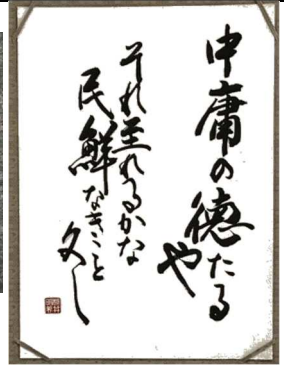 中庸の徳たる
や
それ至れるかな
民鮮なきこと
久し